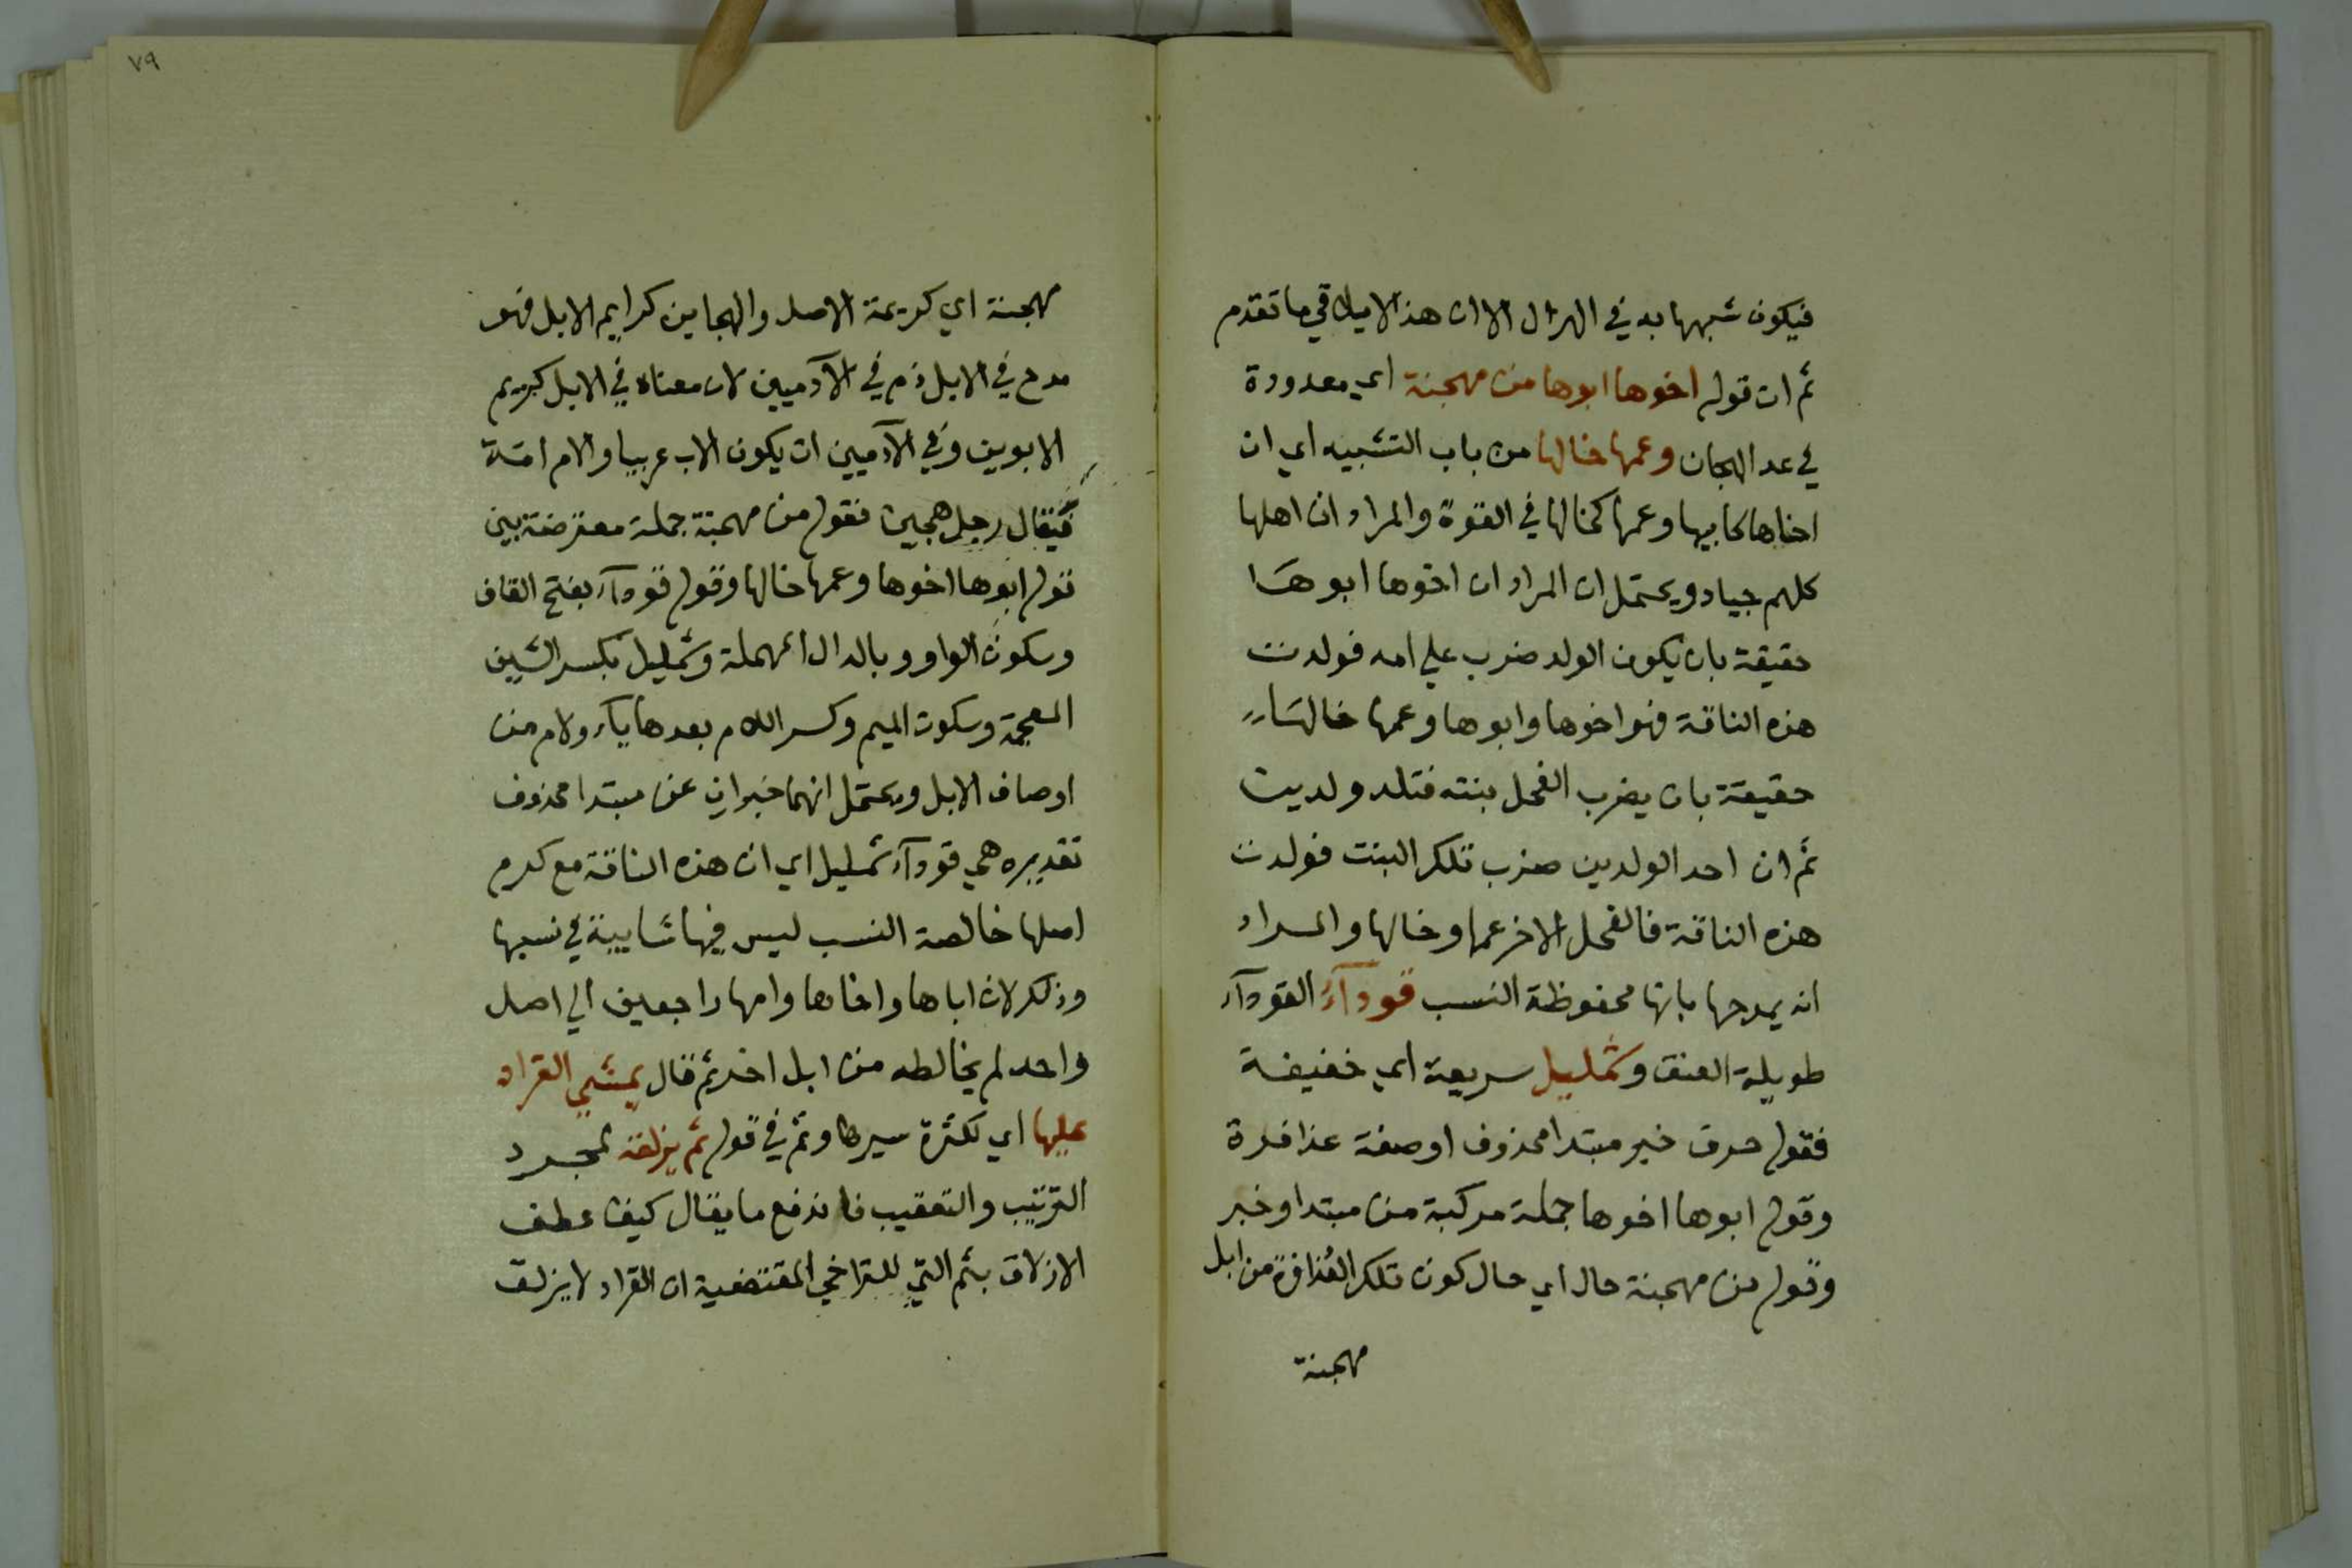 فيكون شبهها به في الهزال الا ان هذا لا يلاقي ما تقدم
ثم ان قوله اخوها ابوها من مهجنة اي معدودة
في عد الهجان وعمها خالها من باب التشبيه اي ان
اخاها كابيها وعمها كخالها في القوة والمراد ان اهلها
كلهم جياد ويحتمل ان المراد ان اخوها ابوها
حقيقة بان يكون الولد ضرب علي امه فولدت
هذه الناقة فهو اخوها وابوها وعمها خالها
حقيقة بان يضرب الفحل بنته فتلد ولدين
ثم ان احد الولدين ضرب تلك البنت فولدت
هذه الناقة فالفحل الاخر عمها وخالها والمراد
انه يمدحها بانها محفوظة النسب قودآء القودآء
طويلة العنق وشمليل سريعة اي خفيفة
فقوله حرف خبر مبتدا محذوف او صفة عذافرة
وقوله ابوها اخوها جملة مركبة من مبتدا وخبر
وقوله من مهجنة حال اي حال كون تلك العُذافرة من ابل
مهجنة
٧٩
مهجنة اي كريمة الاصل والهجاين كرايم الابل فهو
مدح في الابل ذم في الآدميين لان معناه في الابل كريم
الابوين وفي الآدميين ان يكون الاب عربيا والام امة
فيقال رجل هجين فقوله من مهجنة جملة معترضة بين
قوله ابوها اخوها وعمها خالها وقوله قودآء بفتح القاف
وسكون الواو وبالدال المهملة وشمليل بكسر الشين
المعجمة وسكون الميم وكسر اللام بعدها يآء ولام من
اوصاف الابل ويحتمل انهما خبران عن مبتدا محذوف
تقديره هي قودآء شمليل اي ان هذه الناقة مع كرم
اصلها خالصة النسب ليس فيها شايبة في نسبها
وذلك لان اباها واخاها وامها راجعين الي اصل
واحد لم يخالطه من ابل اخر ثم قال يمشي القراد
عليها اي لكثرة سيرها وثم في قوله ثم يزلقه لمجرد
الترتيب والتعقيب فاندفع ما يقال كيف عطف
الازلاق بثم التي للتراخي المقتضية ان القراد لا يزلق